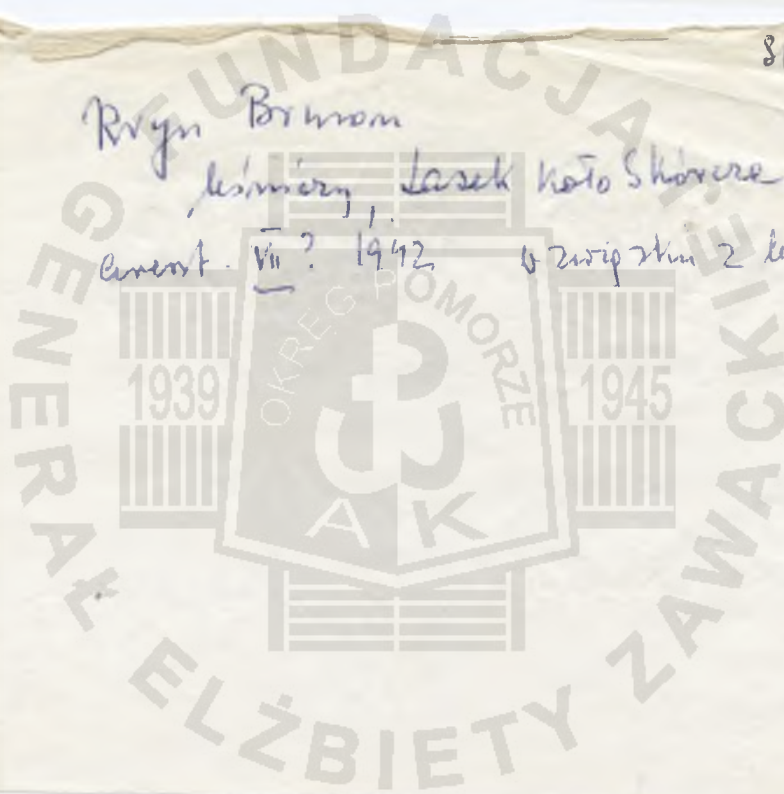 8
Kryn Brunon
leśniczy, Lasek koło Skórcza
arest. VII? 1942 w związku z
FUNDACJA GENERAŁ ELŻBIETY ZAWACKIEJ
OKRĘG POMORZE
1939 1945
AK